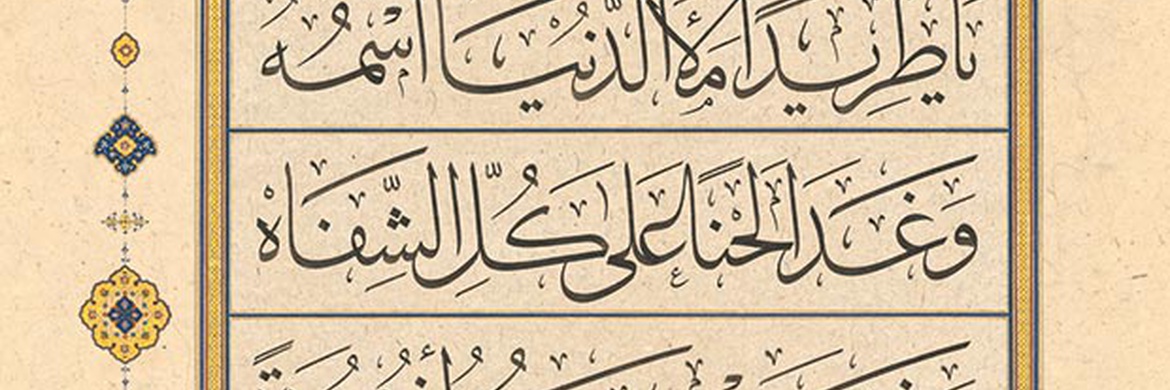 يَا طَرِيدًا مَلَأَ الدُّنْيَا اسْمُهُ
وَغَدَا لَحْنًا عَلَى كُلِّ الشِّفَاهْ